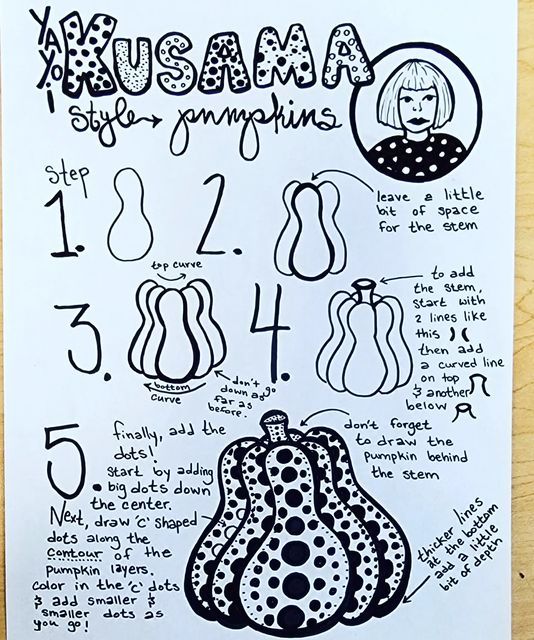 YAYOI
KUSAMA
Style → pumpkins
Step
1.
2.
leave a little
bit of space
for the stem
3.
top curve
bottom
curve
don't go
down as
far as
before.
4.
to add
the stem,
start with
2 lines like
this )(
then add
a curved line
on top
& another
below
5.
finally, add the
dots!
Start by adding
big dots down
the center.
Next, draw 'C' shaped
dots along the
contour of the
pumpkin layers.
Color in the 'c' dots
& add smaller &
smaller dots as
you go!
don't forget
to draw the
pumpkin behind
the stem
thicker lines
at the bottom
add a little
bit of depth